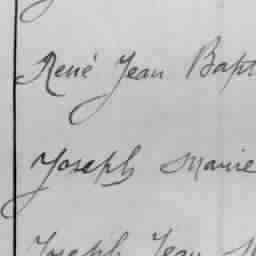 René Jean Bapt
Joseph Marie
Joseph Jean